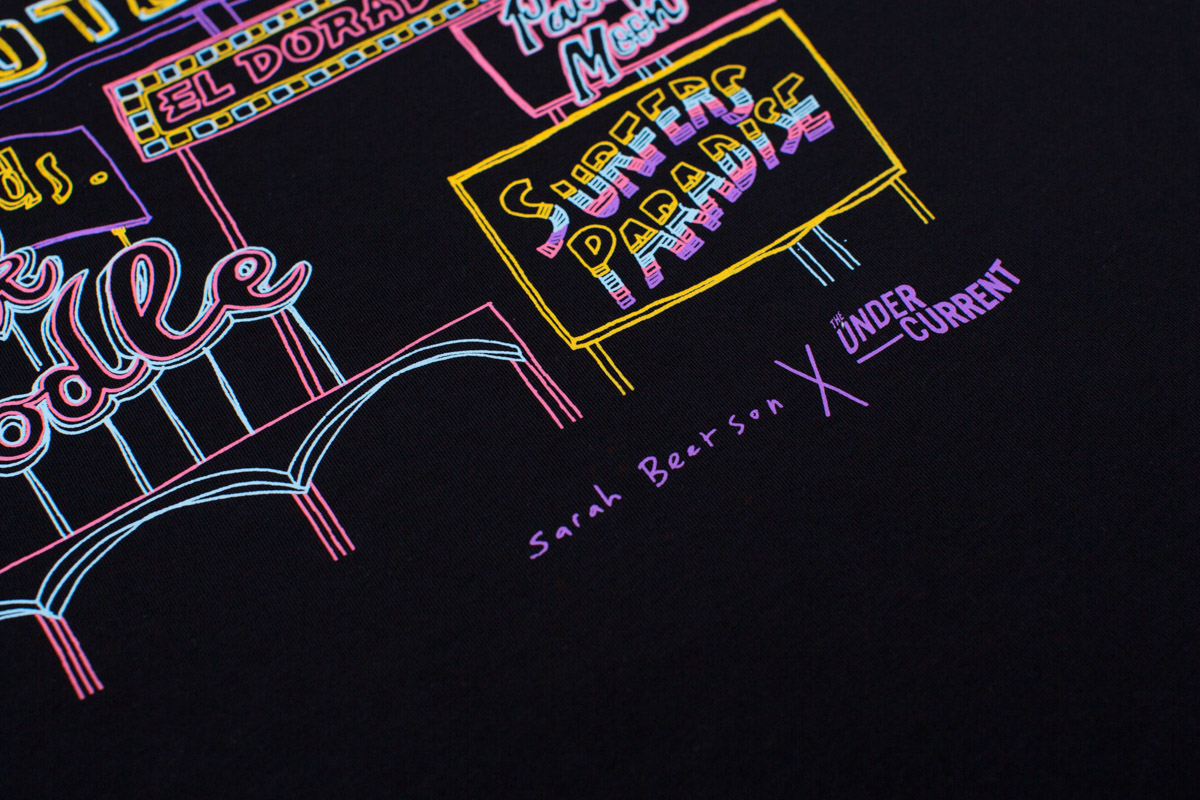 EL DORAD
Moon
SURFERS
PARADISE
ds.
Sarah Beetson X THE UNDER
CURRENT